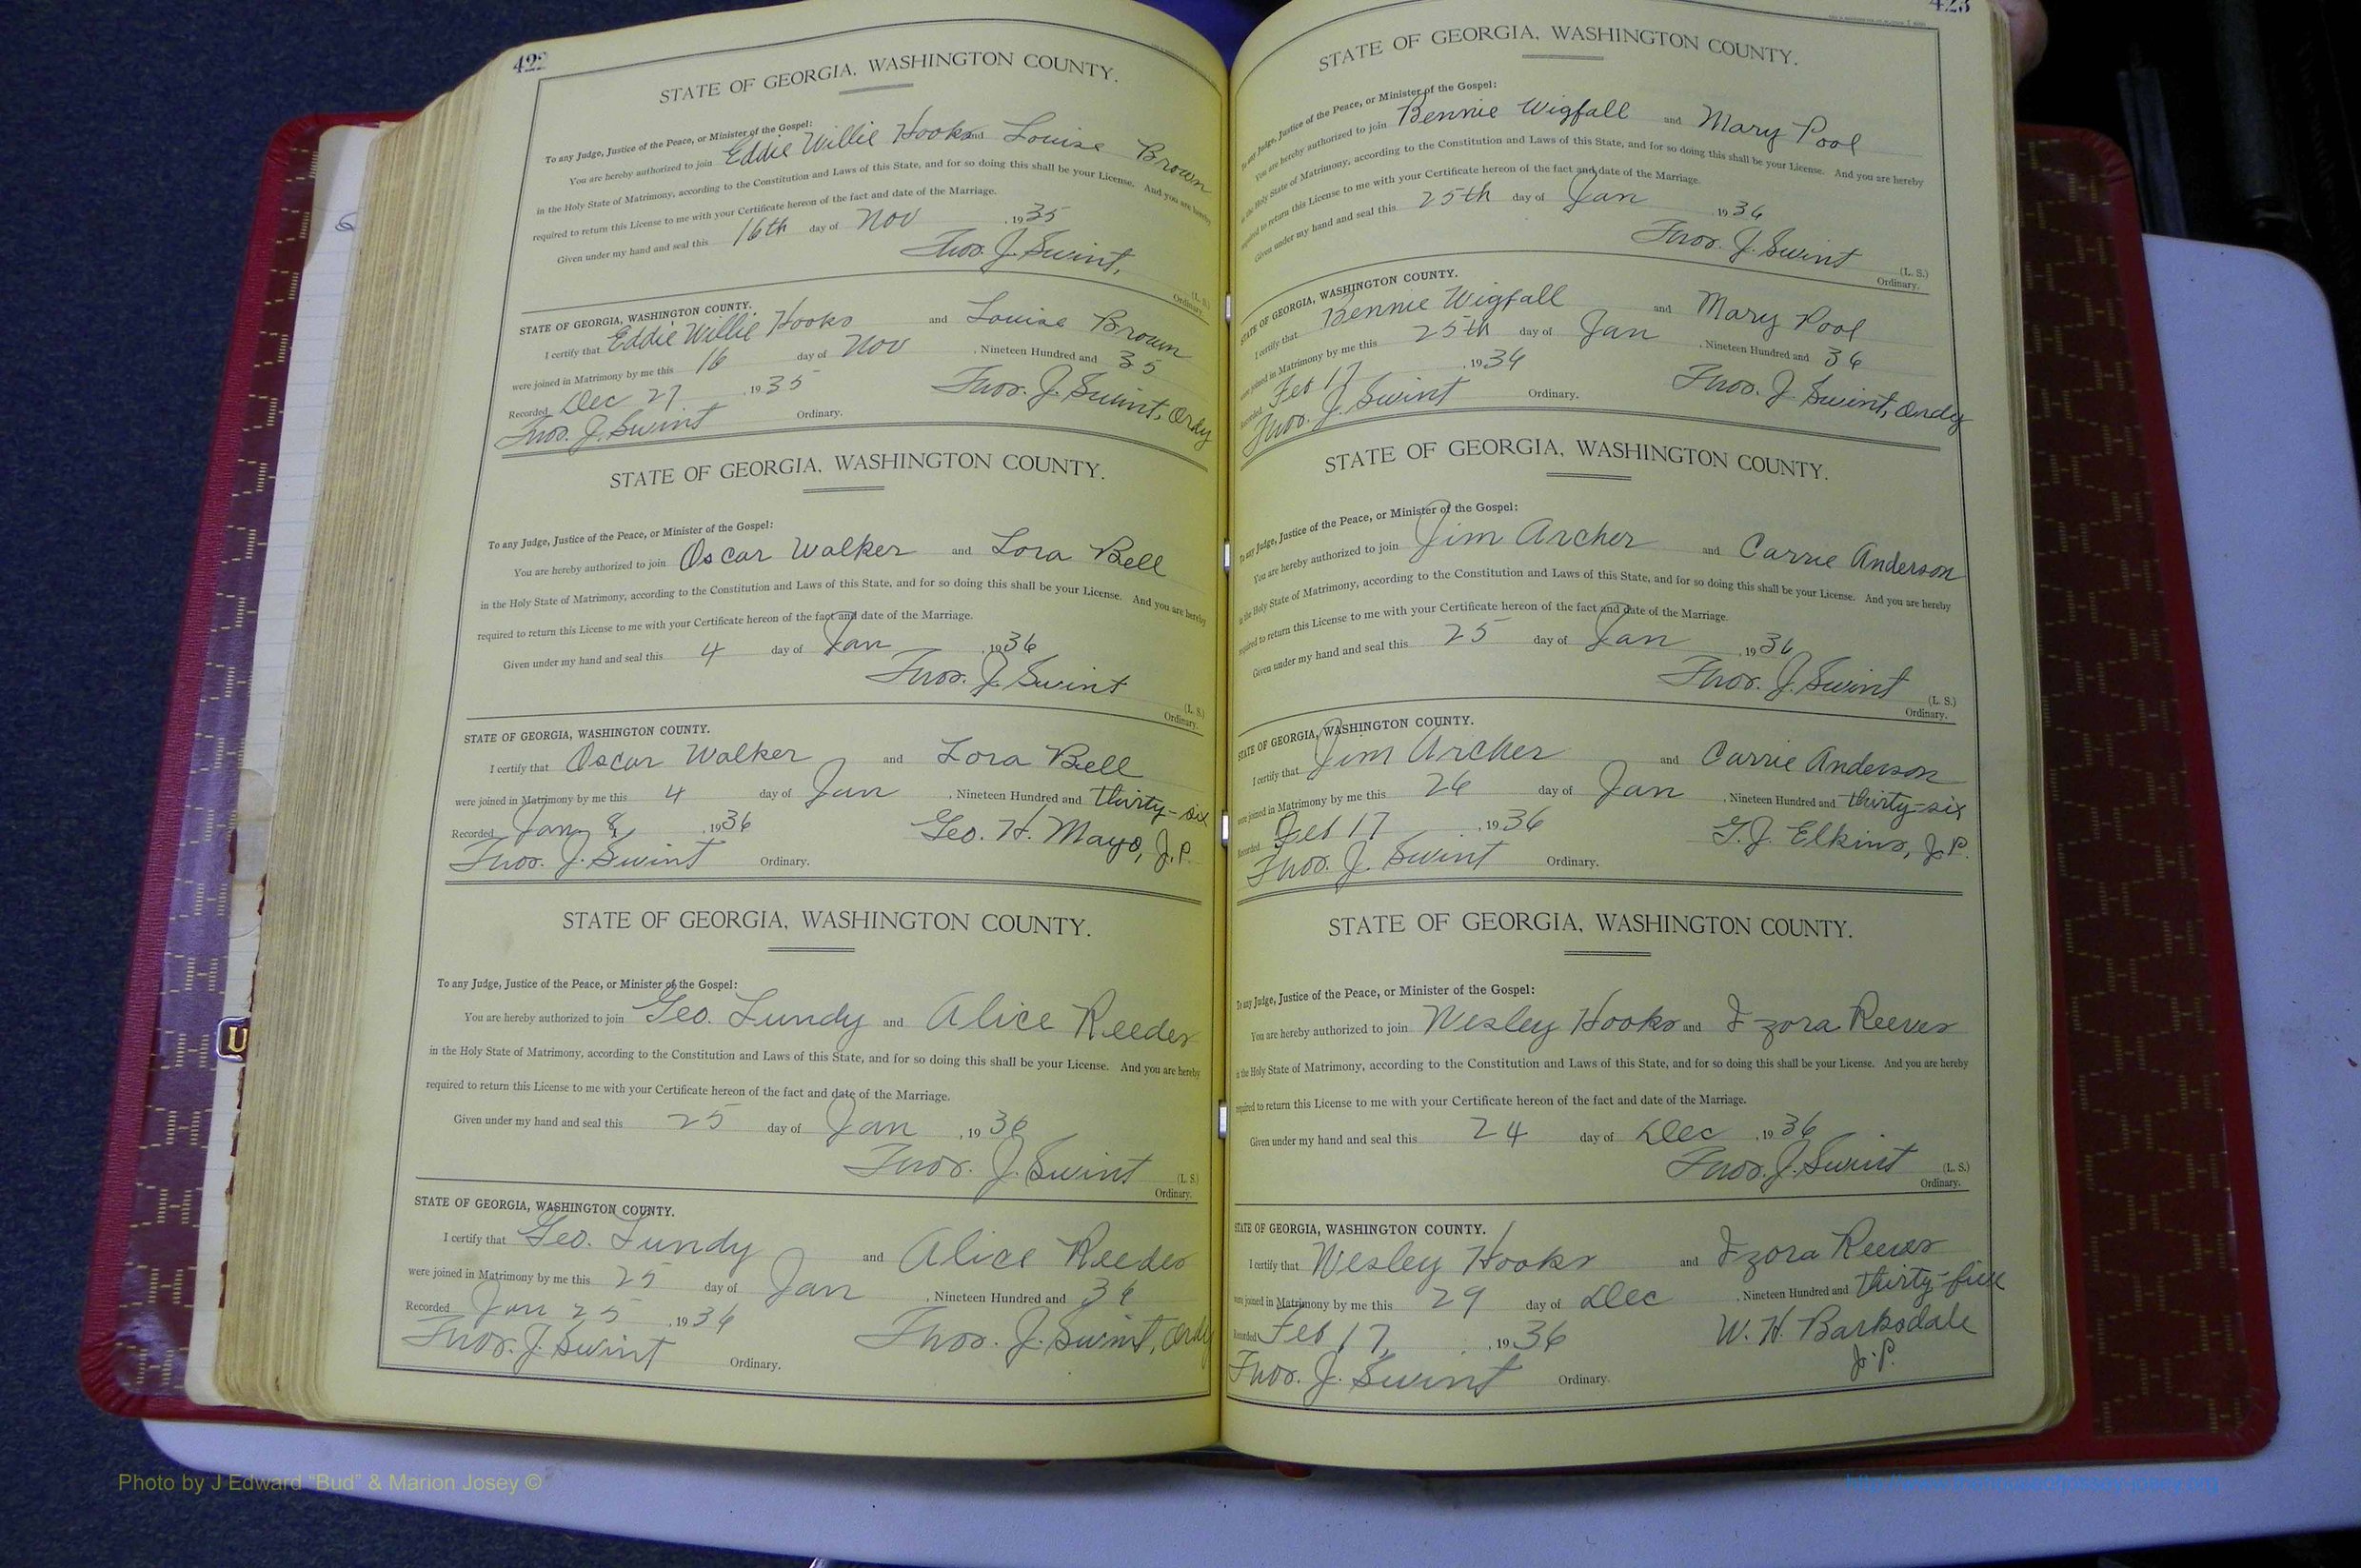 422
STATE OF GEORGIA, WASHINGTON COUNTY.
To any Judge, Justice of the Peace, or Minister of the Gospel:
You are hereby authorized to join Eddie Willie Hooks and Louise Brown
in the Holy State of Matrimony, according to the Constitution and Laws of this State, and for so doing this shall be your License. And you are hereby
required to return this License to me with your Certificate hereon of the fact and date of the Marriage.
Given under my hand and seal this 16th day of Nov , 1935
Thos. J. Swint,
(L. S.)
Ordinary.
STATE OF GEORGIA, WASHINGTON COUNTY.
I certify that Eddie Willie Hooks and Louise Brown
were joined in Matrimony by me this 16 day of Nov , Nineteen Hundred and 35
Recorded Dec 27 , 1935 Thos. J. Swint, Ordy
Thos. J. Swint Ordinary.
STATE OF GEORGIA, WASHINGTON COUNTY.
To any Judge, Justice of the Peace, or Minister of the Gospel:
You are hereby authorized to join Oscar Walker and Lora Bell
in the Holy State of Matrimony, according to the Constitution and Laws of this State, and for so doing this shall be your License. And you are hereby
required to return this License to me with your Certificate hereon of the fact and date of the Marriage.
Given under my hand and seal this 4 day of Jan , 1936
Thos. J. Swint
(L. S.)
Ordinary.
STATE OF GEORGIA, WASHINGTON COUNTY.
I certify that Oscar Walker and Lora Bell
were joined in Matrimony by me this 4 day of Jan , Nineteen Hundred and thirty-six
Recorded Jan 8 , 1936 Geo. H. Mayo, J.P.
Thos. J. Swint Ordinary.
STATE OF GEORGIA, WASHINGTON COUNTY.
To any Judge, Justice of the Peace, or Minister of the Gospel:
You are hereby authorized to join Geo. Lundy and Alice Reeder
in the Holy State of Matrimony, according to the Constitution and Laws of this State, and for so doing this shall be your License. And you are hereby
required to return this License to me with your Certificate hereon of the fact and date of the Marriage.
Given under my hand and seal this 25 day of Jan , 1936
Thos. J. Swint
(L. S.)
Ordinary.
STATE OF GEORGIA, WASHINGTON COUNTY.
I certify that Geo. Lundy and Alice Reeder
were joined in Matrimony by me this 25 day of Jan , Nineteen Hundred and 36
Recorded Jan 25 , 1936 Thos. J. Swint, Ordy
Thos. J. Swint Ordinary.
423
STATE OF GEORGIA, WASHINGTON COUNTY.
To any Judge, Justice of the Peace, or Minister of the Gospel:
You are hereby authorized to join Bennie Wigfall and Mary Pool
in the Holy State of Matrimony, according to the Constitution and Laws of this State, and for so doing this shall be your License. And you are hereby
required to return this License to me with your Certificate hereon of the fact and date of the Marriage.
Given under my hand and seal this 25th day of Jan 1936
Thos. J. Swint
(L. S.)
Ordinary.
STATE OF GEORGIA, WASHINGTON COUNTY.
I certify that Bennie Wigfall and Mary Pool
were joined in Matrimony by me this 25th day of Jan , Nineteen Hundred and 36
Recorded Feb 17 , 1936 Thos. J. Swint, Ordy
Thos. J. Swint Ordinary.
STATE OF GEORGIA, WASHINGTON COUNTY.
To any Judge, Justice of the Peace, or Minister of the Gospel:
You are hereby authorized to join Jim Archer and Carrie Anderson
in the Holy State of Matrimony, according to the Constitution and Laws of this State, and for so doing this shall be your License. And you are hereby
required to return this License to me with your Certificate hereon of the fact and date of the Marriage.
Given under my hand and seal this 25 day of Jan , 1936
Thos. J. Swint
(L. S.)
Ordinary.
STATE OF GEORGIA, WASHINGTON COUNTY.
I certify that Jim Archer and Carrie Anderson
were joined in Matrimony by me this 26 day of Jan , Nineteen Hundred and thirty-six
Recorded Feb 17 , 1936 G. J. Elkins, J.P.
Thos. J. Swint Ordinary.
STATE OF GEORGIA, WASHINGTON COUNTY.
To any Judge, Justice of the Peace, or Minister of the Gospel:
You are hereby authorized to join Wesley Hooks and Izora Reeves
in the Holy State of Matrimony, according to the Constitution and Laws of this State, and for so doing this shall be your License. And you are hereby
required to return this License to me with your Certificate hereon of the fact and date of the Marriage.
Given under my hand and seal this 24 day of Dec , 1936
Thos. J. Swint
(L. S.)
Ordinary.
STATE OF GEORGIA, WASHINGTON COUNTY.
I certify that Wesley Hooks and Izora Reeves
were joined in Matrimony by me this 29 day of Dec , Nineteen Hundred and thirty-five
Recorded Feb 17, , 1936 W. H. Barksdale
J.P.
Thos. J. Swint Ordinary.
Photo by J Edward “Bud” & Marion Josey ©